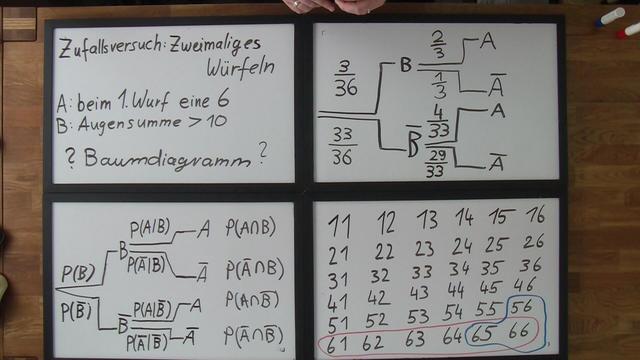 Zufallsversuch: Zweimaliges
Würfeln
A: beim 1. Wurf eine 6
B: Augensumme > 10
? Baumdiagramm ?
3/36 B 2/3 A
1/3 A̅
33/36 B̅ 4/33 A
29/33 A̅
P(B) B P(A|B) A P(A∩B)
P(A̅|B) A̅ P(A̅∩B)
P(B̅) B̅ P(A|B̅) A P(A∩B̅)
P(A̅|B̅) A̅ P(A̅∩B̅)
11 12 13 14 15 16
21 22 23 24 25 26
31 32 33 34 35 36
41 42 43 44 45 46
51 52 53 54 55 56
61 62 63 64 65 66